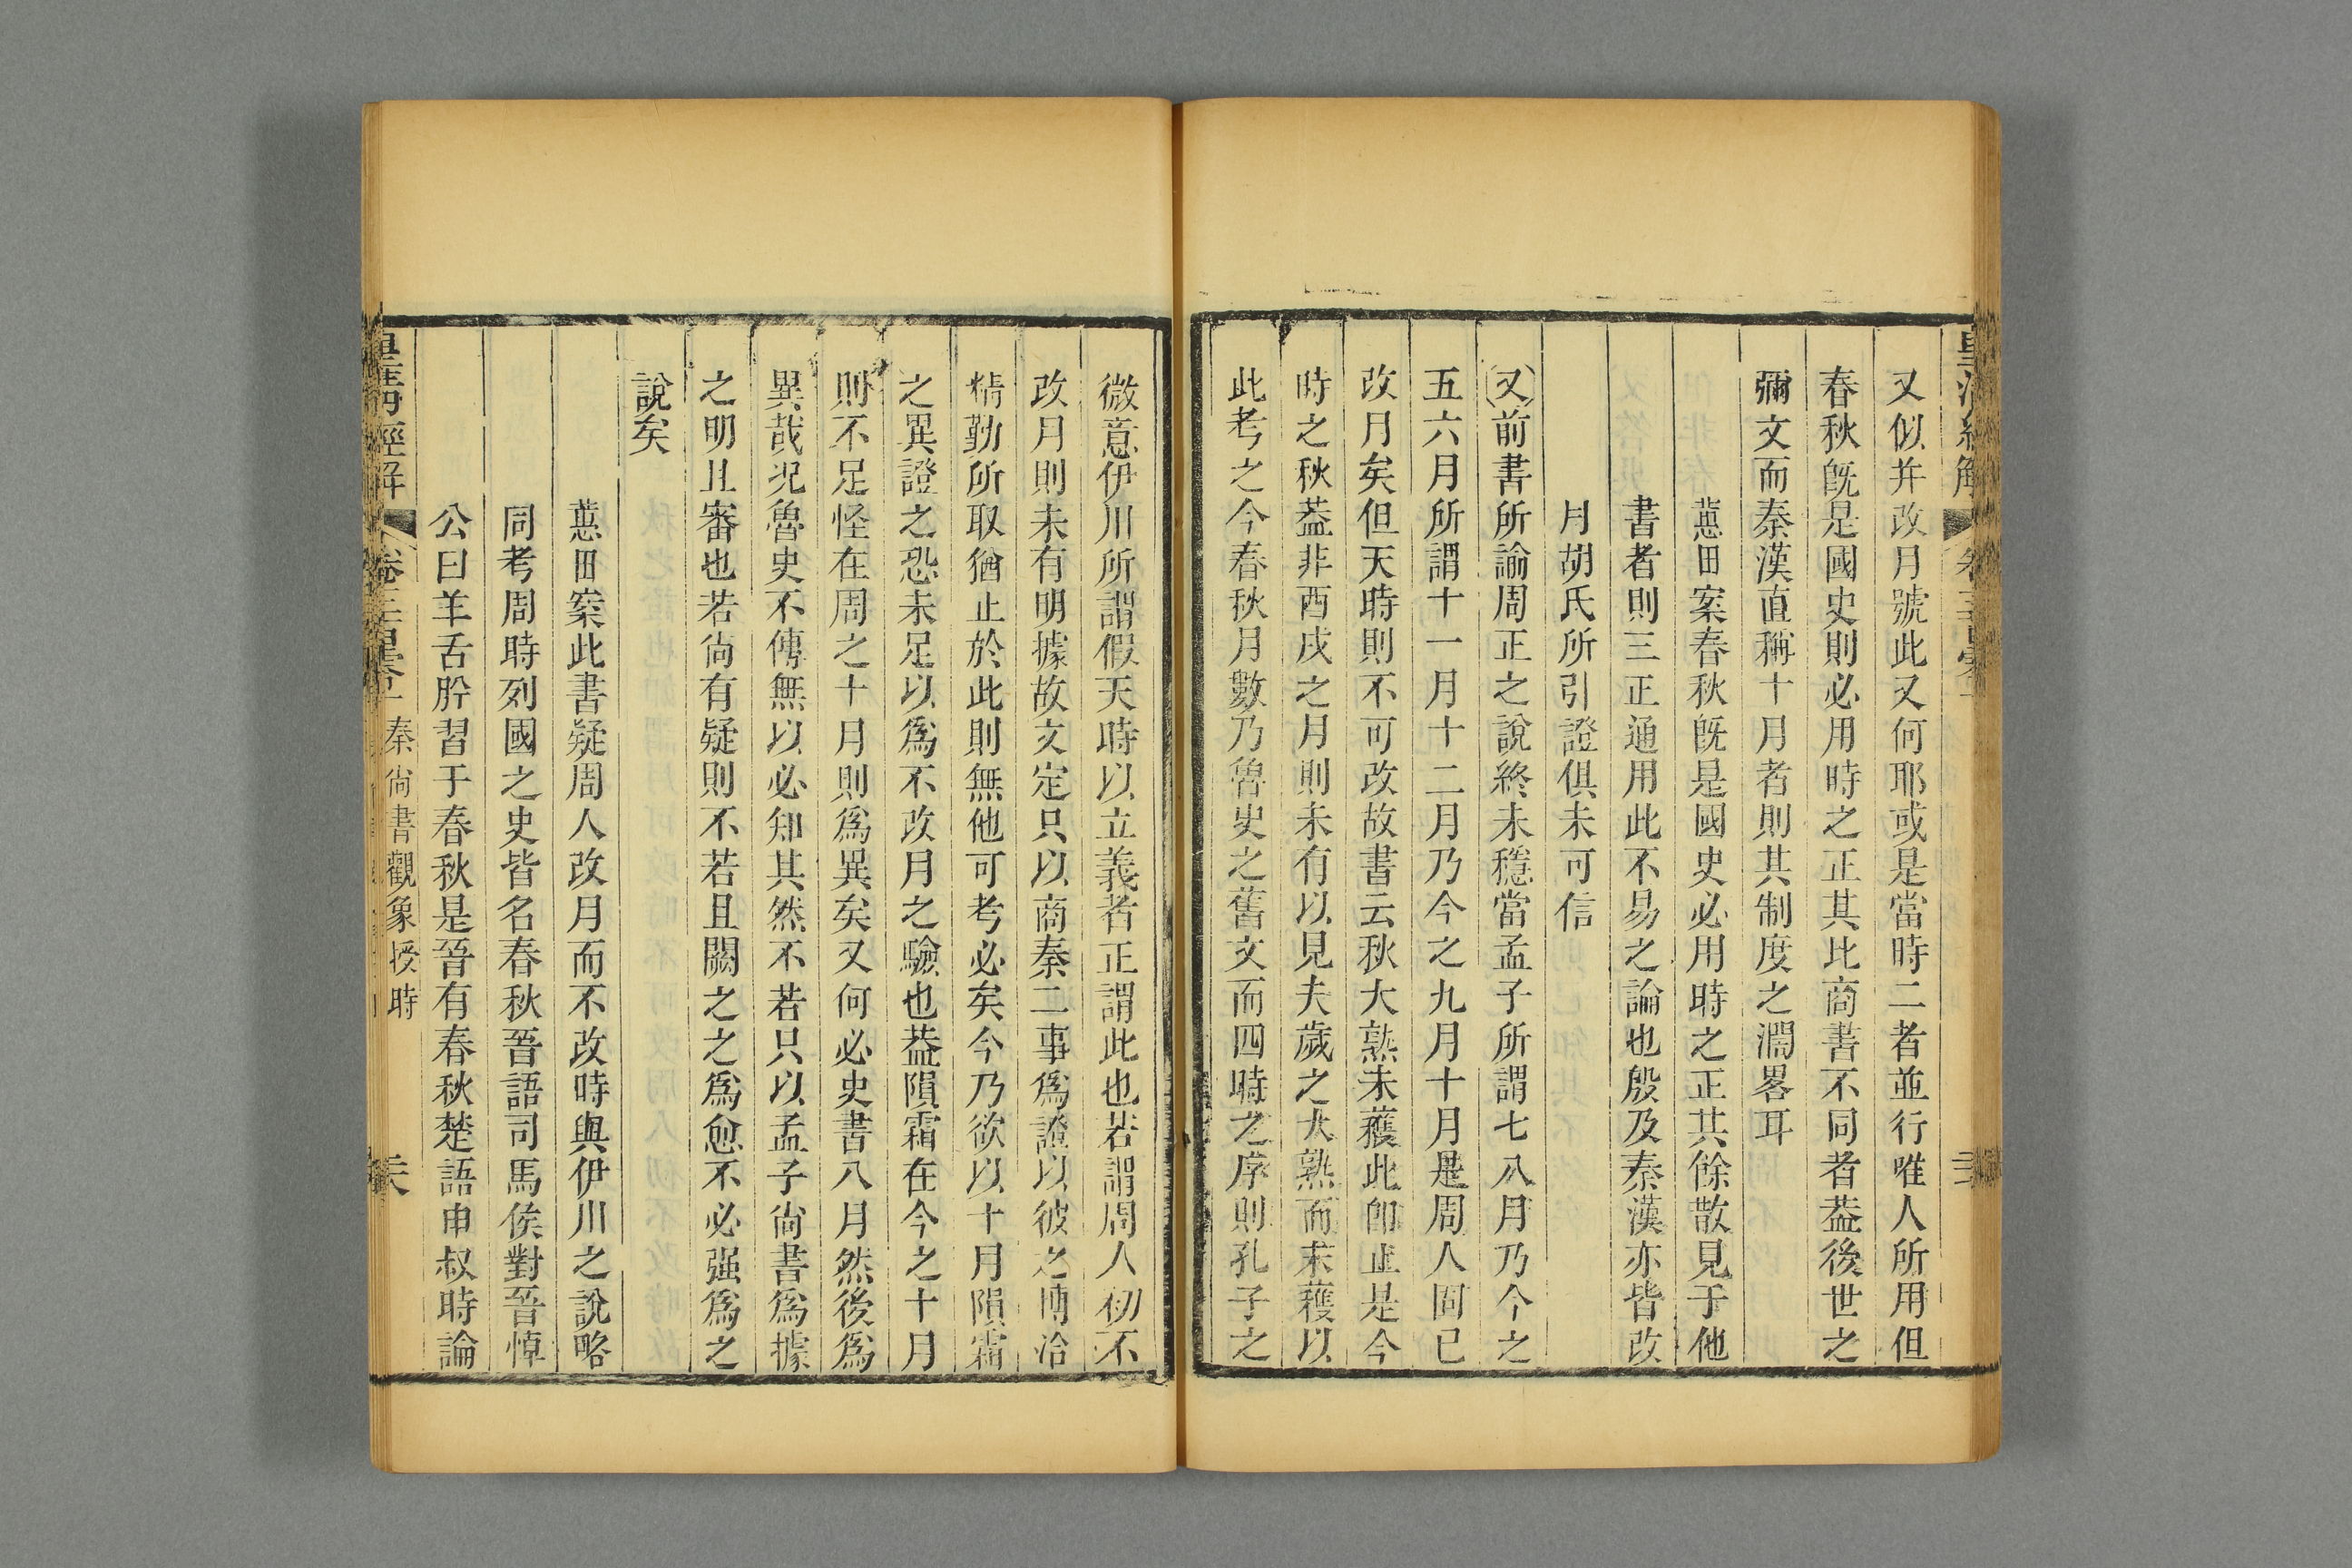 又似并改月號此又何耶或是當時二者並行唯人所用但
春秋旣是國史則必用時之正其比商書不同者葢後世之
彌文而秦漢直稱十月者則其制度之濶畧耳
蕙田案春秋旣是國史必用時之正其餘散見于他
書者則三正通用此不易之論也殷及秦漢亦皆改
月胡氏所引證俱未可信
又前書所諭周正之說終未穩當孟子所謂七八月乃今之
五六月所謂十一月十二月乃今之九月十月是周人固已
改月矣但天時則不可改故書云秋大熟未穫此卽止是今
時之秋葢非酉戌之月則未有以見夫歲之大熟而未穫以
此考之今春秋月數乃魯史之舊文而四時之序則孔子之
微意伊川所謂假天時以立義者正謂此也若謂周人初不
改月則未有明據故文定只以商秦二事爲證以彼之博洽
精勤所取猶止於此則無他可考必矣今乃欲以十月隕霜
之異證之恐未足以爲不改月之驗也葢隕霜在今之十月
則不足怪在周之十月則爲異矣又何必史書八月然後爲
異哉况魯史不傳無以必知其然不若只以孟子尚書爲據
之明且審也若尚有疑則不若且闕之之爲愈不必强爲之
說矣
蕙田案此書疑周人改月而不改時與伊川之說略
同考周時列國之史皆名春秋晉語司馬侯對晉悼
公曰羊舌肸習于春秋是晉有春秋楚語申叔時論
皇清經解
秦尚書觀象授時